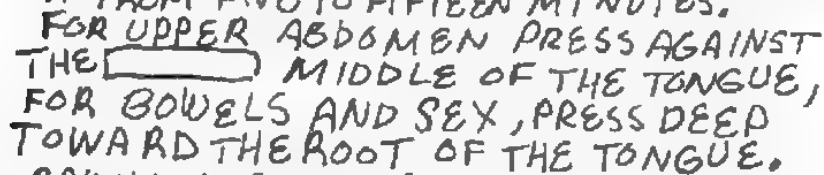 FROM FIVE TO FIFTEEN MINUTES.
FOR UPPER ABDOMEN PRESS AGAINST
THE MIDDLE OF THE TONGUE,
FOR BOWELS AND SEX, PRESS DEEP
TOWARD THE ROOT OF THE TONGUE.